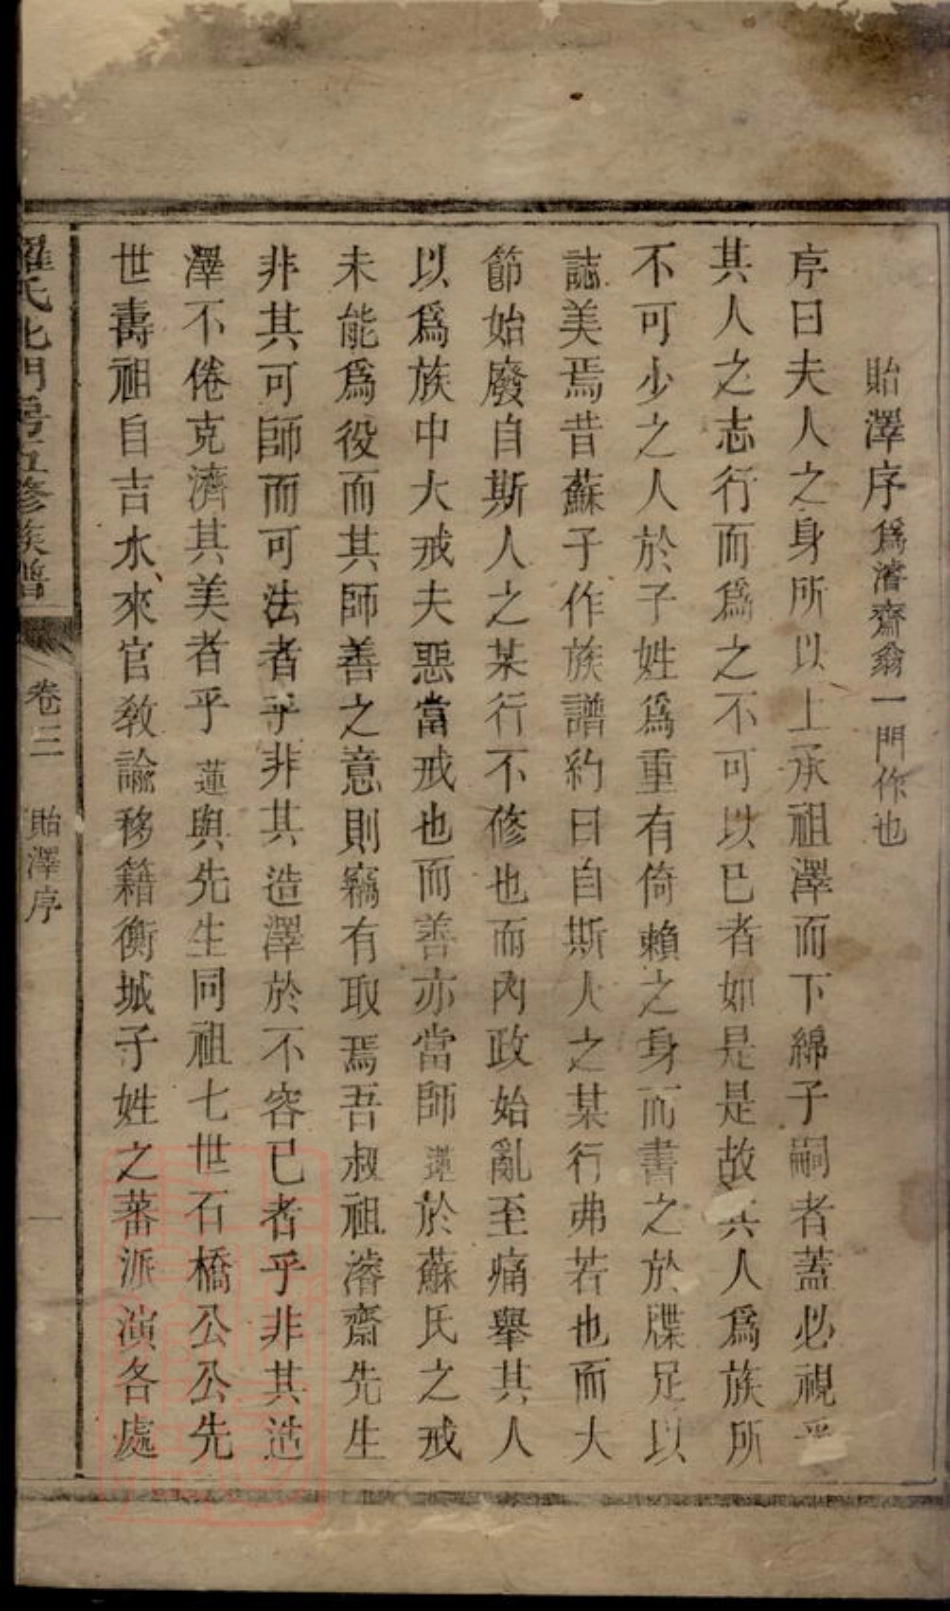 貽澤序 爲濬齋翁一門作也
序曰夫人之身所以上承祖澤而下綿子嗣者蓋必視乎
其人之志行而爲之不可以已者如是是故其人爲族所
不可少之人於子姓爲重有倚賴之身而書之於牒足以
誌美焉昔蘇子作族譜約曰自斯人之某行弗若也而大
節始廢自斯人之某行不修也而內政始亂至痛舉其人
以爲族中大戒夫惡當戒也而善亦當師蓮於蘇氏之戒
未能爲役而其師善之意則竊有取焉吾叔祖濬齋先生
非其可師而可法者乎非其造澤於不容已者乎非其造
澤不倦克濟其美者乎蓮與先生同祖七世石橋公公先
世壽祖自吉水來官教諭移籍衡城子姓之蕃派演各處
羅氏北門房五修族譜 卷三 貽澤序 一